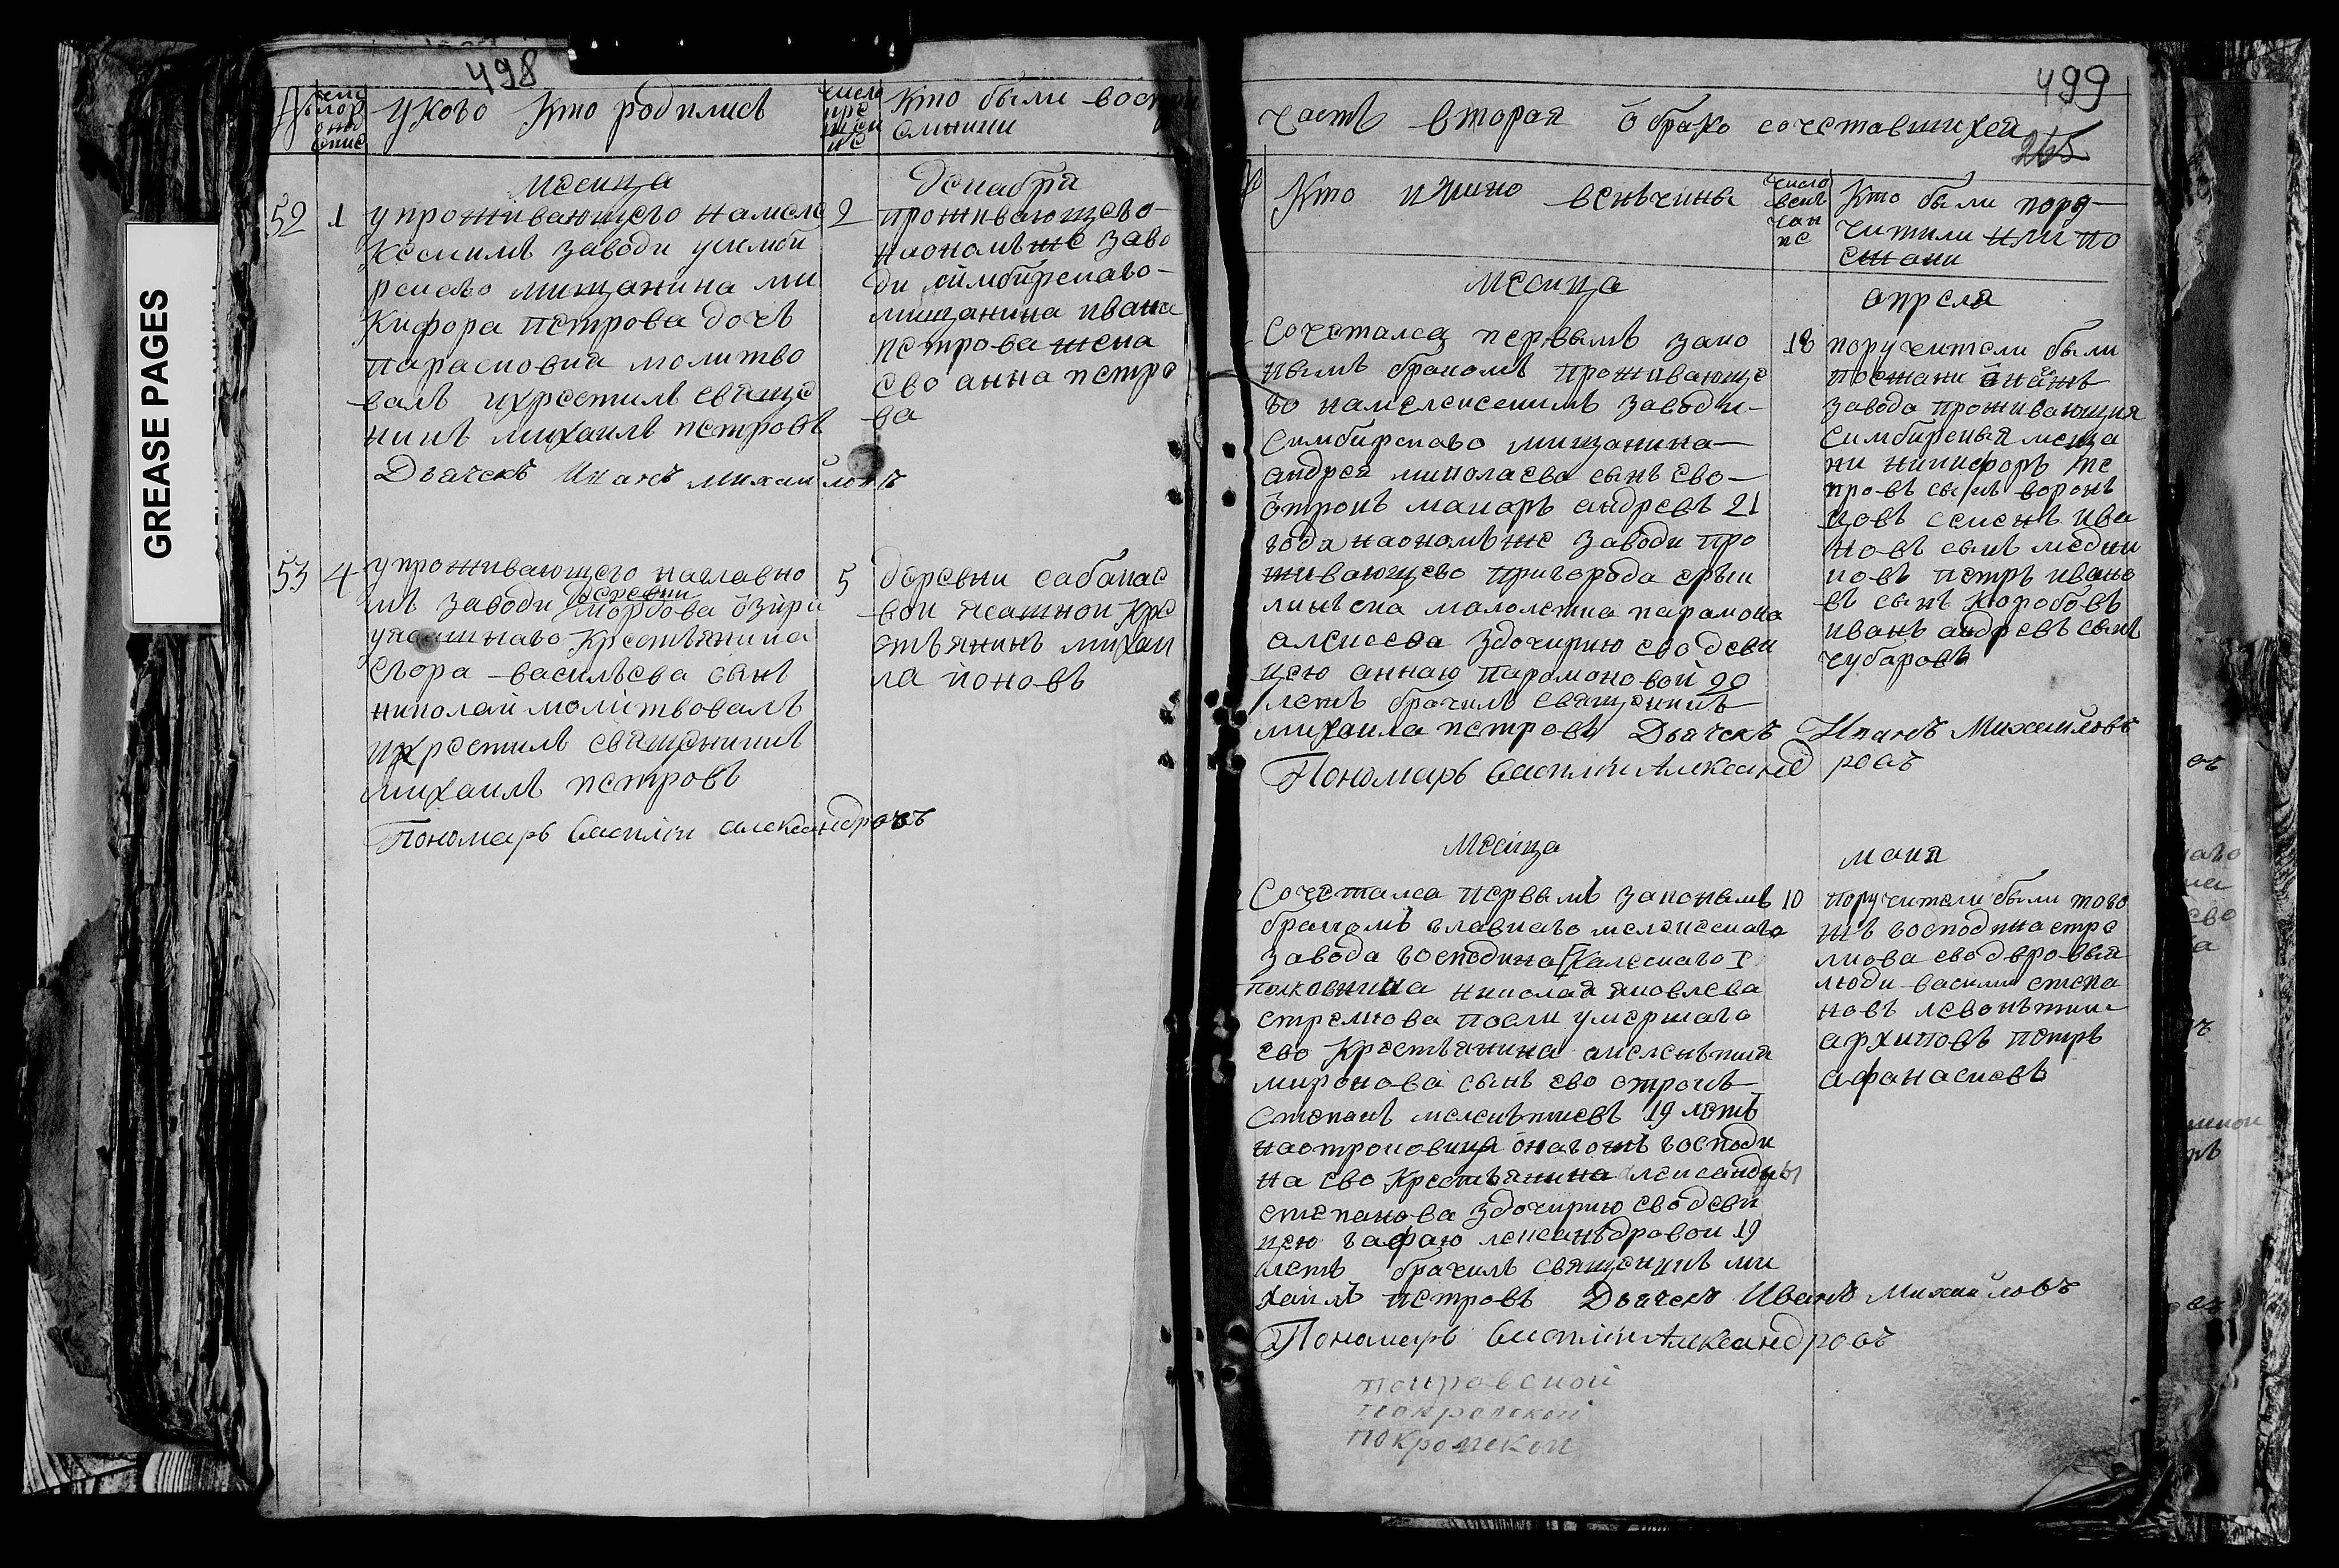 GREASE PAGES
498
число рож
у кого кто родились
число кре щен ие
кто были воспри
емники
месяца
декабря
52 1 у проживающего намеле
кескимъ заводи усимби
рскаго мищанина ми
кифора петрова дочь
парасковия молитво
валъ икрестилъ свяще
никъ михаилъ петровъ
Дьячекъ Иванъ михайловъ
2 проживающего
наономъже заво
ди симбирскаго
мищанина ивана
петрова жена
ево анна петро
ва
53 4 у проживающего наглавно
мъ заводи деревни мордова озира
уясашнаго крестьянина
егора васильева сынъ
николай молитвовалъ
икрестилъ священникъ
михаилъ петровъ
Пономарь Василiи александровъ
5 деревни сабакае
вои ясашнои кре
стьянинъ михаи
ла ионовъ
499
265
часть вторая о брако сочетавшихся
Кто икино венчины
число вен чан ие
Кто были пору
читили или по
езжани
месица
апреля
сочетался первымъ зако
нымъ бракомъ проживающе
го намелекескимъ заводи
симбирскаго мищанина
андрея миколаева сынъ ево
отрокъ макаръ андревъ 21
года наономъже заводи про
живающево пригорода ерык
линска малолетка парамона
алексева здочирию ево деви
цею анною парамоновой 20
летъ брачилъ священникъ
михаила петровъ Дьячекъ Иванъ Михайловъ
Пономарь Василiи Александровъ
18 поручители были
поезжани
завода проживающия
симбирския меща
ни никифоръ пе
тровъ сынъ ворон
цовъ семенъ ива
новъ сынъ медни
ковъ петръ ивано
въ сынъ коробовъ
иванъ андревъ сынъ
чубаровъ
месица
маия
Сочетался первымъ законымъ
бракомъ главнаго мелекескаго
завода господина
полковника николая яковлева
стрелкова посли умершаго
ево крестьянина мелентия
миронова сынъ ево отрокъ
степанъ мелентиевъ 19 летъ
наотроковици оногожъ господи
на ево крестьянина лександры
степанова здочирию ево деви
цею агафаю лександровои 19
летъ брачилъ священникъ ми
хаилъ петровъ Дьячекъ Иванъ Михайловъ
Пономарь Василiи Александровъ
10 поручители были того
жъ господина стре
лкова ево дворовыя
люди василии степа
новъ левонтии
архиповъ петръ
афанасиевъ
покровской
покровской
покровской